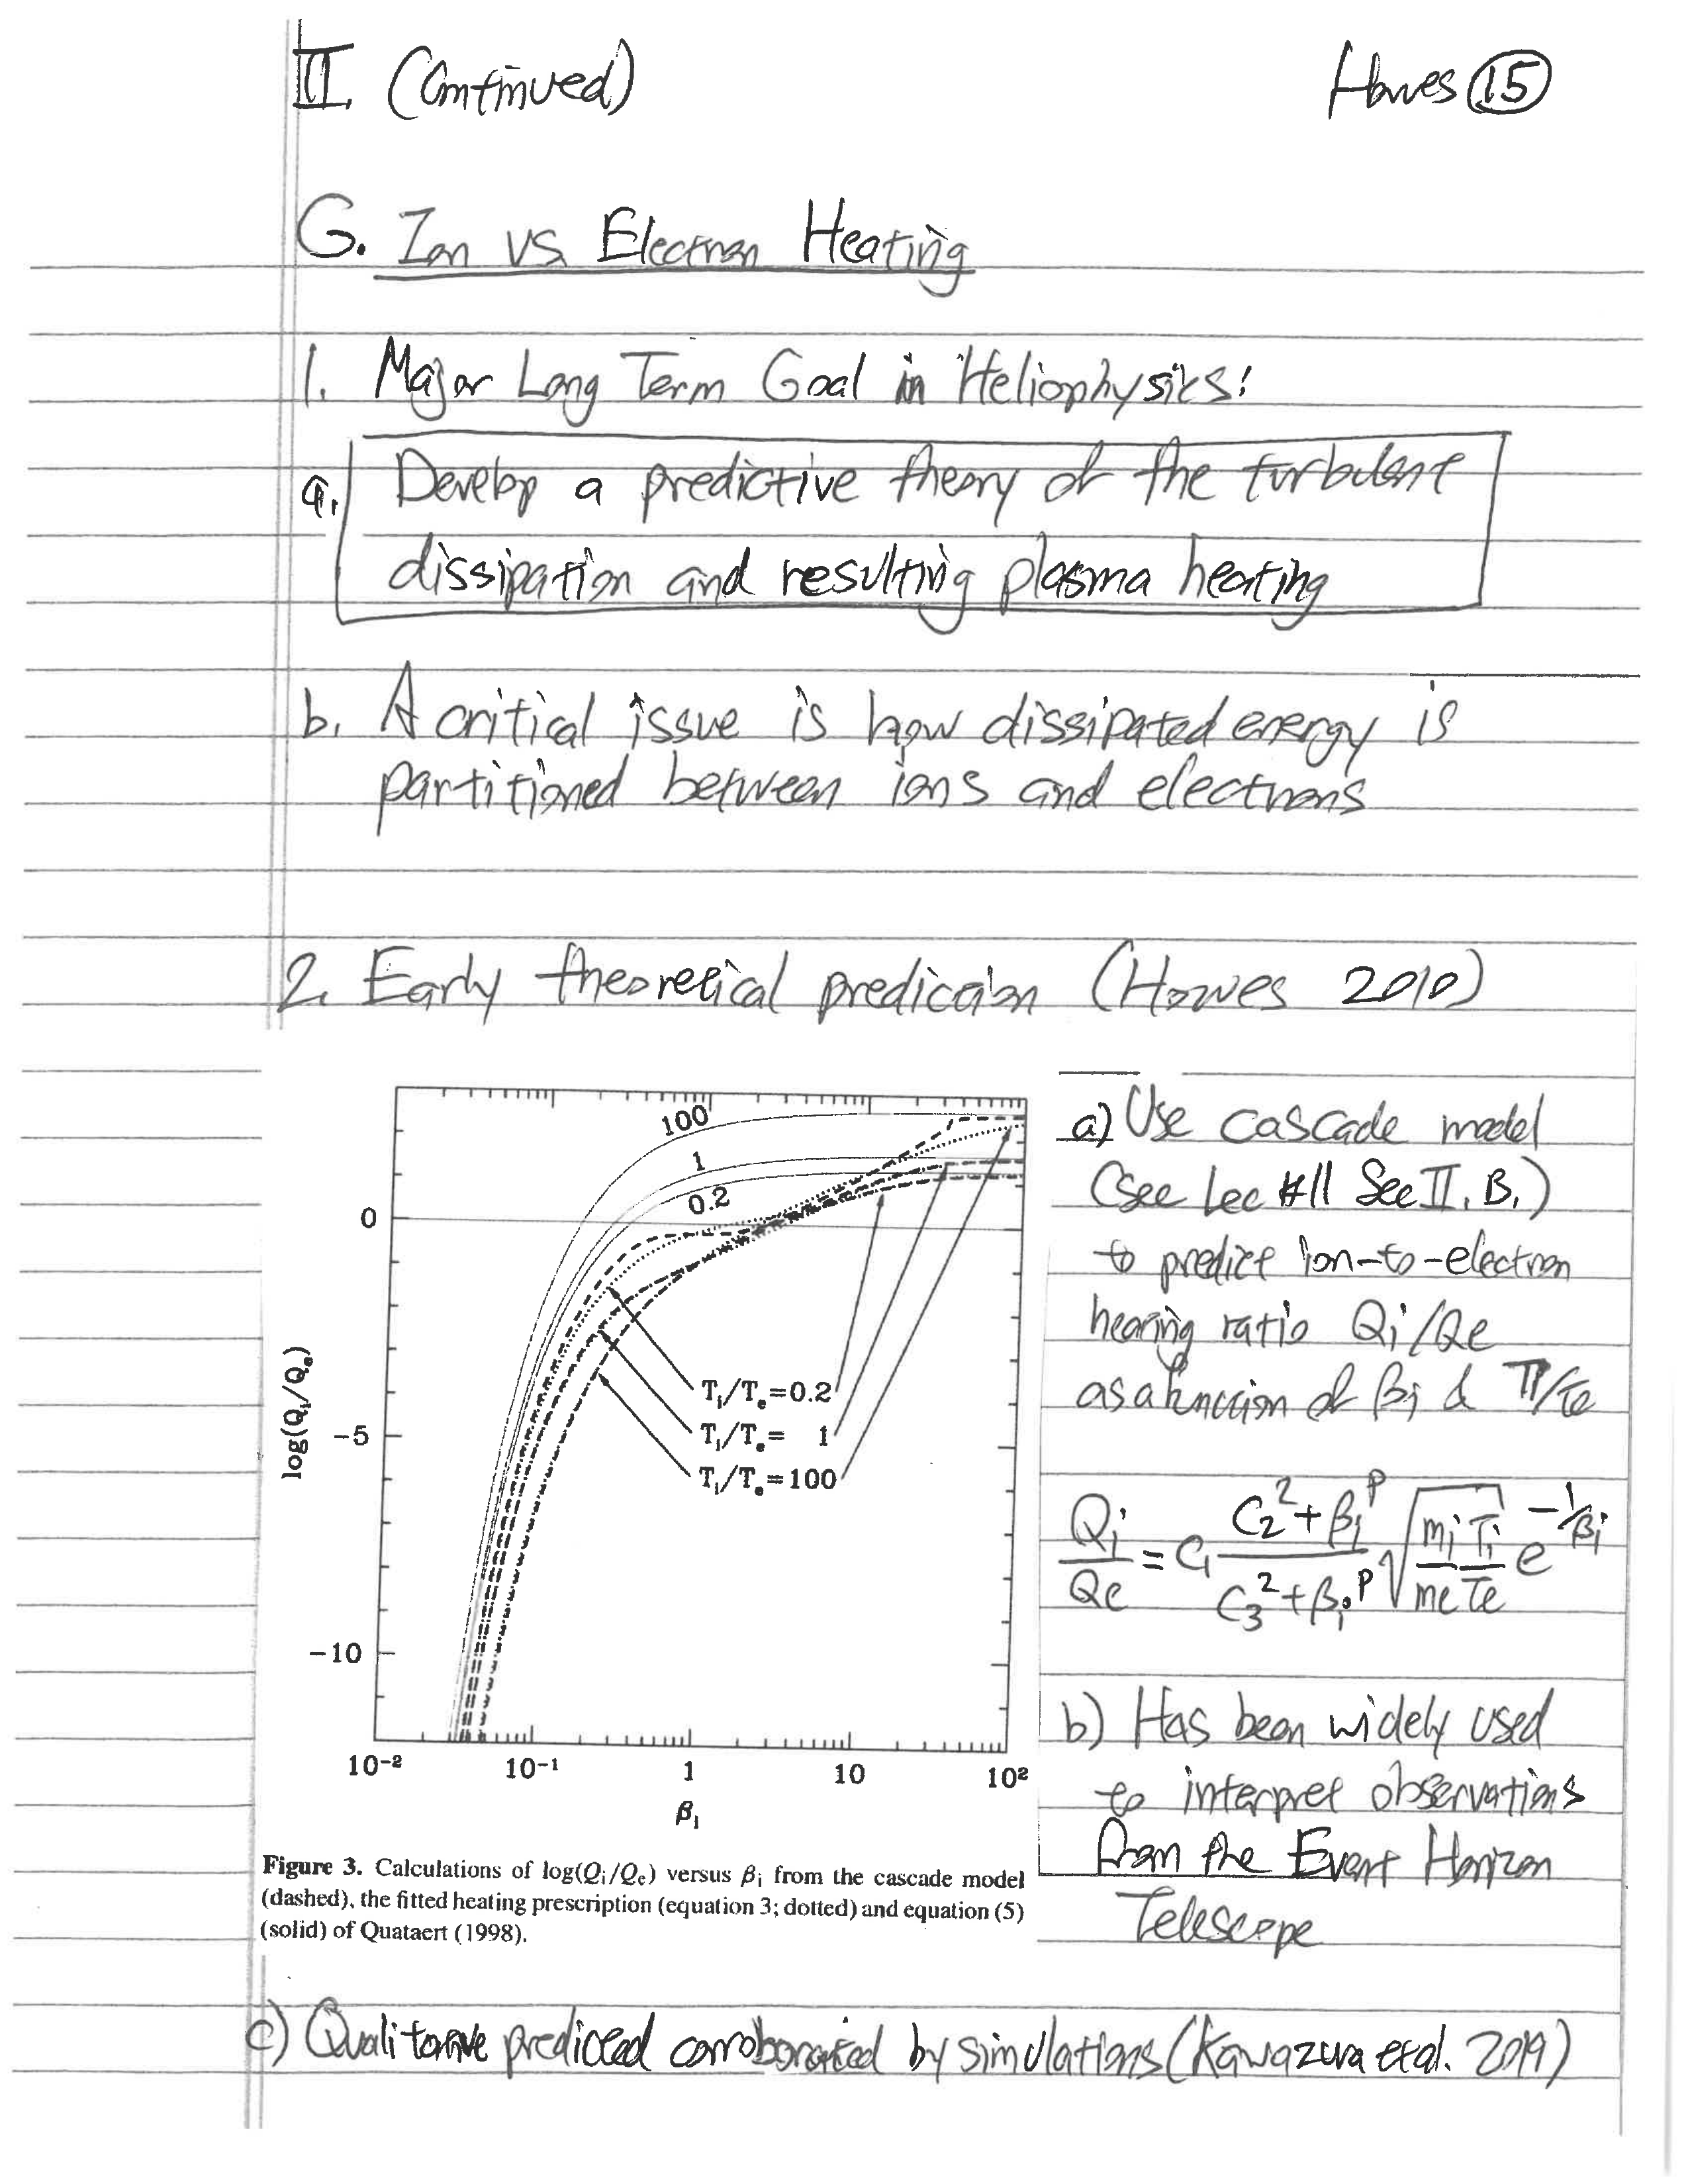 II. (Continued)
Howes 15
G. Ion vs. Electron Heating
1. Major Long Term Goal in Heliophysics:
a. Develop a predictive theory of the turbulent
dissipation and resulting plasma heating
b. A critical issue is how dissipated energy is
partitioned between ions and electrons
2. Early theoretical prediction (Howes 2010)
100
1
0.2
0
-5
-10
log(Qᵢ/Qₑ)
Tᵢ/Tₑ=0.2
Tᵢ/Tₑ= 1
Tᵢ/Tₑ=100
10⁻² 10⁻¹ 1 10 10²
βᵢ
Figure 3. Calculations of log(Qᵢ/Qₑ) versus βᵢ from the cascade model
(dashed), the fitted heating prescription (equation 3; dotted) and equation (5)
(solid) of Quataert (1998).
a) Use cascade model
(see Lec #11 Sec II. B.)
to predict ion-to-electron
heating ratio Qi/Qe
as a function of βi & Ti/Te
Qi/Qe = C₁ (C₂² + βᵢᵖ)/(C₃² + βᵢᵖ) √(mᵢTᵢ/mₑTₑ) e^(-1/βᵢ)
b) Has been widely used
to interpret observations
from the Event Horizon
Telescope
c) Qualitative predicted corroborated by simulations (Kawazura et al. 2019)